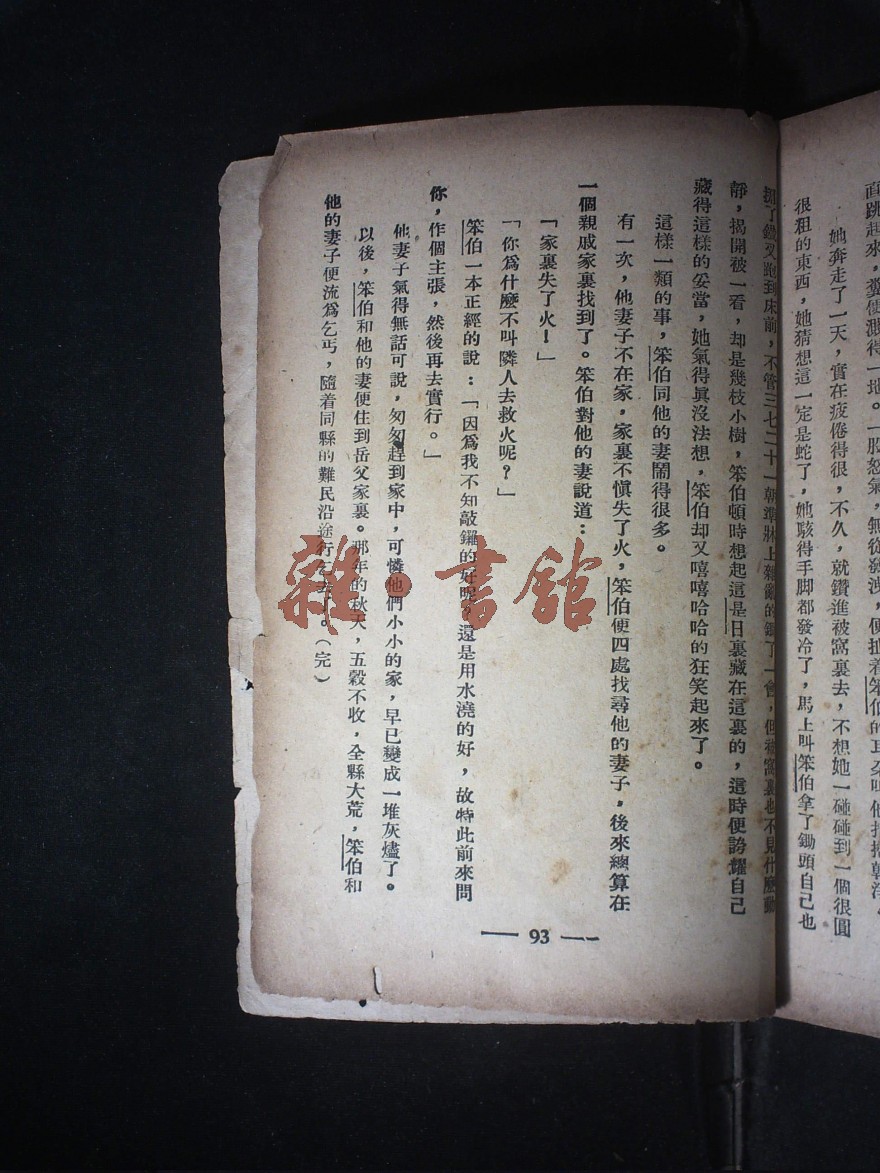 她奔走了一天，實在疲倦得很，不久，就鑽進被窩裏去，不想她一碰碰到一個很圓
很粗的東西，她猜想這一定是蛇了，她駭得手脚都發冷了，馬上叫笨伯拿了鋤頭自己也
又跑到床前，不管三七二十一朝準牀上雜亂的鋤了一會，但被窩裏也不見什麼動
靜，揭開被一看，却是幾枝小樹，笨伯頓時想起這是日裏藏在這裏的，這時便誇耀自己
藏得這樣的妥當，她氣得眞沒法想，笨伯却又嘻嘻哈哈的狂笑起來了。
這樣一類的事，笨伯同他的妻鬧得很多。
有一次，他妻子不在家，家裏不愼失了火，笨伯便四處找尋他的妻子，後來總算在
一個親戚家裏找到了。笨伯對他的妻說道：
「家裏失了火！」
「你爲什麼不叫隣人去救火呢？」
笨伯一本正經的說：「因爲我不知敲鑼的好呢？還是用水澆的好，故特此前來問
你，作個主張，然後再去實行。」
他妻子氣得無話可說，匆匆趕到家中，可憐他們小小的家，早已變成一堆灰燼了。
以後，笨伯和他的妻便住到岳父家裏。那年的秋天，五穀不收，全縣大荒，笨伯和
他的妻子便流爲乞丐，隨着同縣的難民沿途行乞去了。（完）
— 93 —
雜·書館